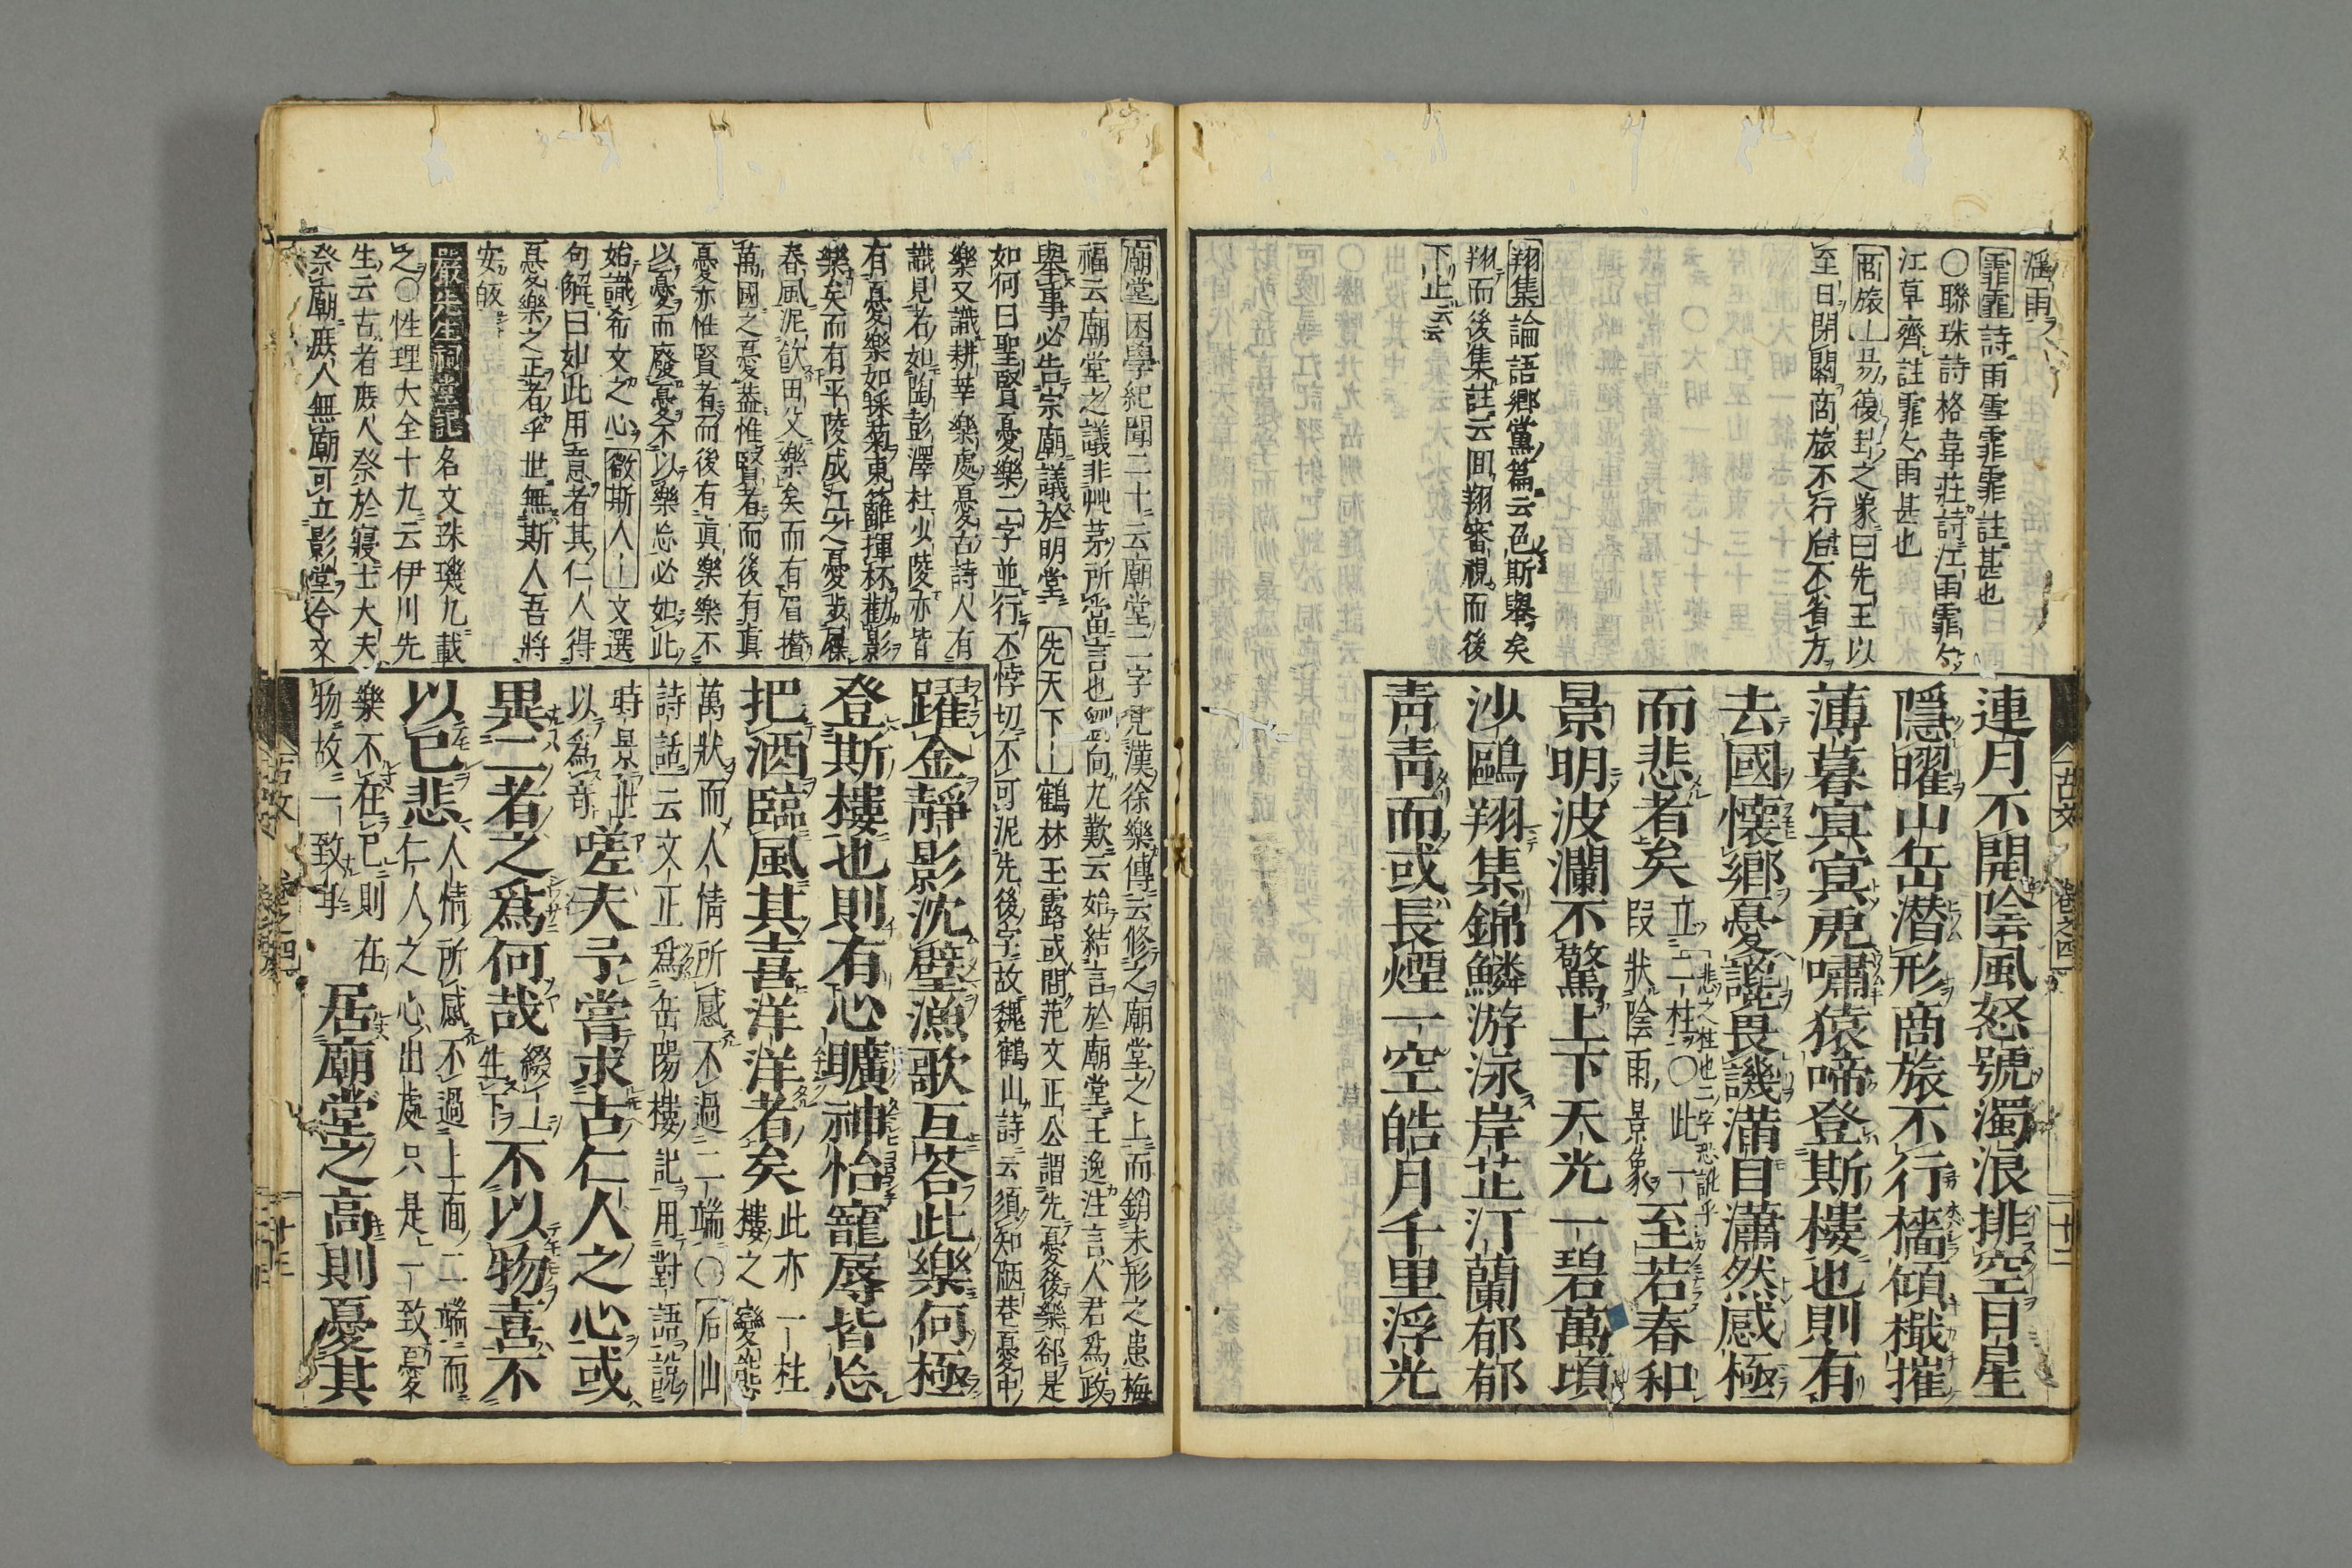 淫雨
霏霏 詩雨雪霏霏註甚也
○聯珠詩格韋莊詩江雨霏々
江草齊註霏々雨甚也
商旅｜易復卦之象曰先王以
至日閉關商旅不行后不省方
翔集 論語鄉黨篇云色斯舉矣
翔而後集註云回翔審視而後
下止云云
連月不開陰風怒號濁浪排空日星
隱曜山岳潛形商旅不行檣傾檝摧
薄暮冥冥虎嘯猿啼登斯樓也則有
去國懷鄉憂讒畏譏滿目蕭然感極
而悲者矣
立二柱○此一
段狀陰雨景象
至若春和
景明波瀾不驚上下天光一碧萬頃
沙鷗翔集錦鱗游泳岸芷汀蘭郁郁
青青而或長煙一空皓月千里浮光
古文
卷之四
廿二
廟堂 困學紀聞二十云廟堂二字見漢徐樂傳云修之廟堂之上而銷未形之患梅
福云廟堂之議非艸茅所當言也劉向九歎云始結言於廟堂王逸注言人君爲政
舉事必告宗廟議於明堂 先天下｜鶴林玉露或問范文正公謂先憂後樂郤是
如何曰聖賢憂樂二字並行不悖切不可泥先後字故魏鶴山詩云須知陋巷憂中
樂又識耕莘樂處憂古詩人有
識見者如陶彭澤杜少陵亦皆
有憂樂如採菊東籬揮杯勸影
樂矣而有平陸成江之憂步屧
春風泥飲田父樂矣而有眉攢
萬國之憂蓋惟賢者而後有眞
憂亦惟賢者而後有眞樂樂不
以憂而廢憂不以樂忘必如此
始識希文之心 微斯人｜文選
句解曰如此用意者其仁人得
憂樂之正者乎世無斯人吾將
安皈
嚴先生祠堂記 名文珠璣九載
之○性理大全十九云伊川先
生云古者庶人祭於寢士大夫
祭廟庶人無廟可立影堂今文
躍金靜影沈璧漁歌互荅此樂何極
登斯樓也則有心曠神怡寵辱皆忘
把酒臨風其喜洋洋者矣
此亦一柱
樓之變態
萬狀而人情所感不過二端○后山
詩話云文正爲岳陽樓記用對語說
時景世
以爲奇
嗟夫予嘗求古仁人之心或
異二者之爲何哉
綴｜
生下
不以物喜不
以已悲
人情所感不過上面二端而
仁人之心出處只是一致憂
樂不在已則在
物故一致耳
居廟堂之高則憂其